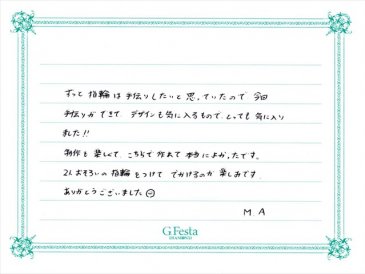 ずっと 指輪は手作りしたいと思っていたので 今回
手作りができて、デザインも気に入るもので、とっても気に入り
ました!!
制作も楽しくて、こちらで作れて本当によかったです。
2人おそろいの指輪をつけて でかけるのが 楽しみです
ありがとうございました
M.A
G.Festa
DIAMOND